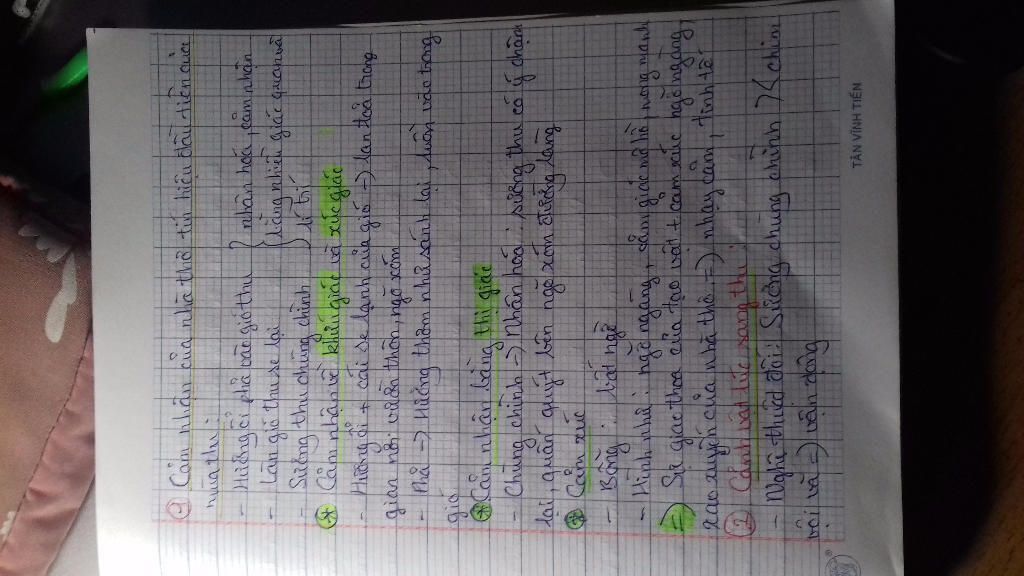 ① Cảm nhận của nhà thơ tín hiệu đầu tiên của
mùa thu
- Hương ổi phả vào gió thu } nhân hoá, cảm nhận
- Làn gió thu se lại } bằng nhiều giác quan và
- Sương thu chùng chình } lí trí
* Cảm nhận về khứu giác và xúc giác
- Hương ổi + cái se lạnh của gió => lan toả trong
gian nơi vườn thôn, ngõ xóm
- Phả => Hương thơm như sánh lại, luồn vào trong
gió
* Cảm nhận bằng thị giác
- Chùng chình => Nhân hoá: sương thu cố ý chậm
lại, quấn quýt bên ngõ xóm đường làng
* Cảm xúc
- Bỗng: bất ngờ
- Hình như: ngỡ ngàng, cảm giác mơ hồ, mong manh
=> Sự giao thoa của tạo vật + cảm xúc ngỡ ngàng,
xao xuyến của nhà thơ => nhạy cảm, tinh tế
② Cảnh vật lúc sang thu
- Nghệ thuật đối: Sương chùng chình >< chim
vội vã => vận động
TÂN VĨNH TIẾN